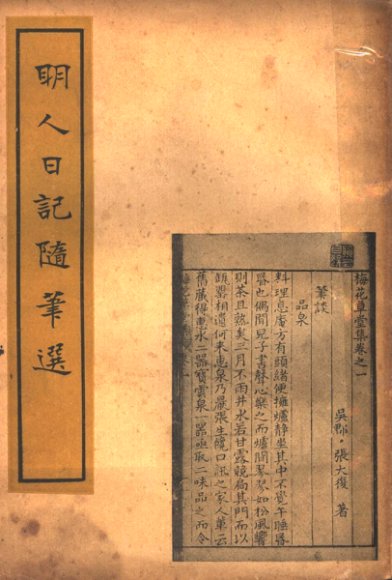 眀人日記隨筆選
梅花草堂集卷之一
吳郡。張大復 著
筆談
品泉
料理息庵方有頭緒便擁爐靜坐其中不覺午睡昏
昏也偶聞兒子書聲心樂之而爐間翏翏如松風響
則茶且熟矣三月不雨井水若甘露競扃其門而以
缾罌相遺何來惠泉乃厭張生饞口訊之家人輩云
舊藏得惠水二器寶雲泉一器亟取二味品之而令